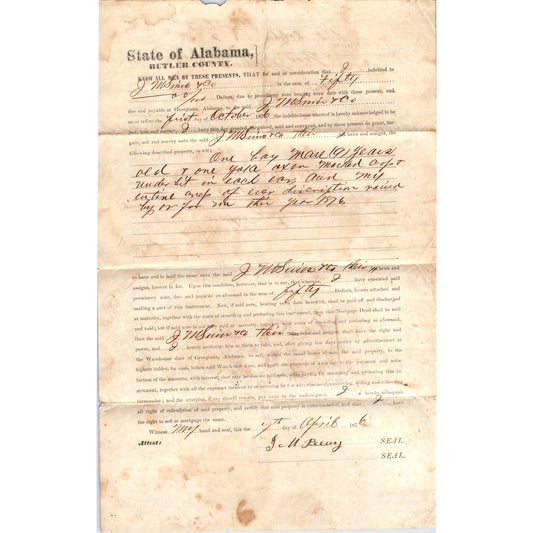 State of Alabama,
BUTLER COUNTY.
KNOW ALL MEN BY THESE PRESENTS, THAT for and in consideration that I indebted to
in the sum of Fifty
00/100 Dollars, due by promissory note bearing even date with these present, and
due and payable at Georgiana, Alabama, to the said
on or before the first of October 1876, the indebtedness whereof is hereby acknowledged to be
just, true and correct, I have this day
gain, sell and convey unto the said heirs and assigns, the
following described property, to wit:
One bay Mare (9) years
old & one yoke oxen marked crop &
underbit in each ear and my
entire crop of ever discription raised
by or for me this year 1876
to have and to hold the same unto the said heirs and
assigns, forever in fee. Upon this condition, however, that is to say, that whereas I have executed said
promissory note, due and payable as aforesaid in the sum of Fifty Dollars, hereto attached and
making a part of this instrument. Now, if said note, bearing even date herewith, shall be paid off and discharged
at maturity, together with the costs of recording and probating this instrument, then this Mortgage Deed shall be null
and void; but if said note is not paid at maturity, together with costs of recording and probating as aforesaid,
then said heirs and assigns, shall have the right and
power, and I hereby authorize him or them to take, and, after giving ten days notice by advertisement at
the Warehouse door of Georgiana, Alabama, to sell, within the usual hours of sale, the said property, to the
highest bidder, for cash, before said Warehouse door, and apply the proceeds of such sale to the payment and satis-
faction of the
strument, together with all the expenses incurred
thereunder; and the overplus, if any should remain, pay over to the undersigned. I hereby relinquish
all right of redemption of said property, and certify that said property is unincumbered, and that I have
the right to sell or mortgage the same.
Witness My hand and seal, this the 7th day of April 1876
Attest: SEAL.
SEAL.